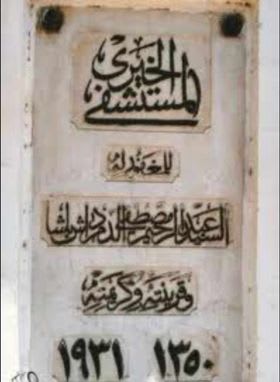 المستشفى الخيرى
للمغفور له
السيد عبد الرحيم مصطفى الدمرداش باشا
وقرينته وكريمته
١٣٥٠ ١٩٣١